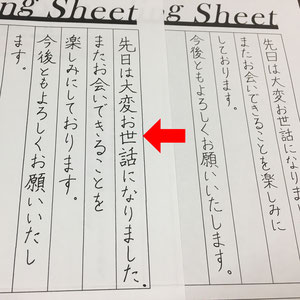 ng Sheet
先日は大変お世話になりました。
またお会いできることを
楽しみにしております。
今後ともよろしくお願いいたし
ます。
g Sheet
先日は大変お世話になりま
またお会いできることを楽しみに
しております。
今後ともよろしくお願いいたします。